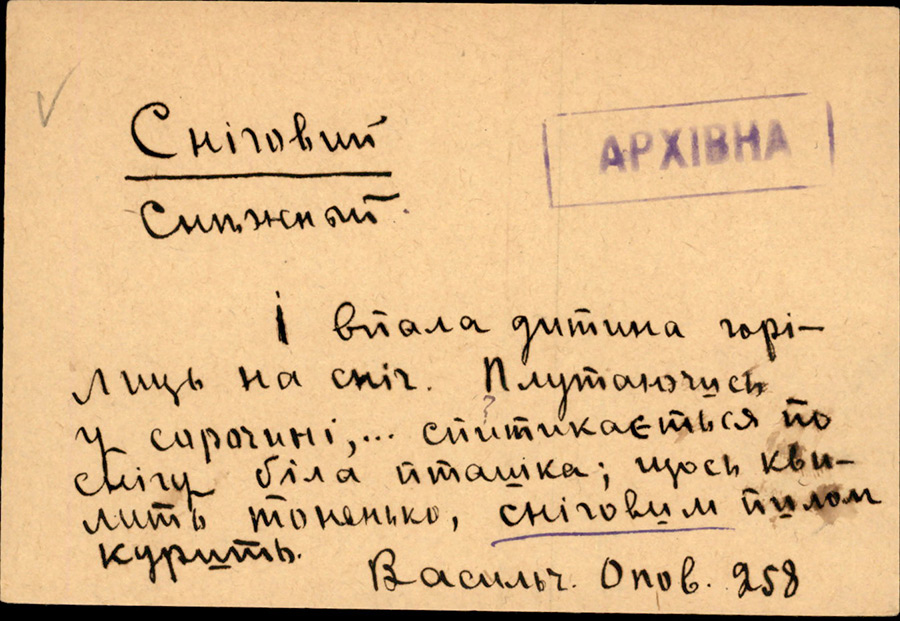 Сніговий
АРХІВНА
Снѣжный.
І впала дитина горі-
лиць на сніг. Плутаючись
у сорочині,... спитикається по
снігу біла пташка; щось кви-
лить тоненько, сніговим пилом
курить.
Васильч. Опов. 258